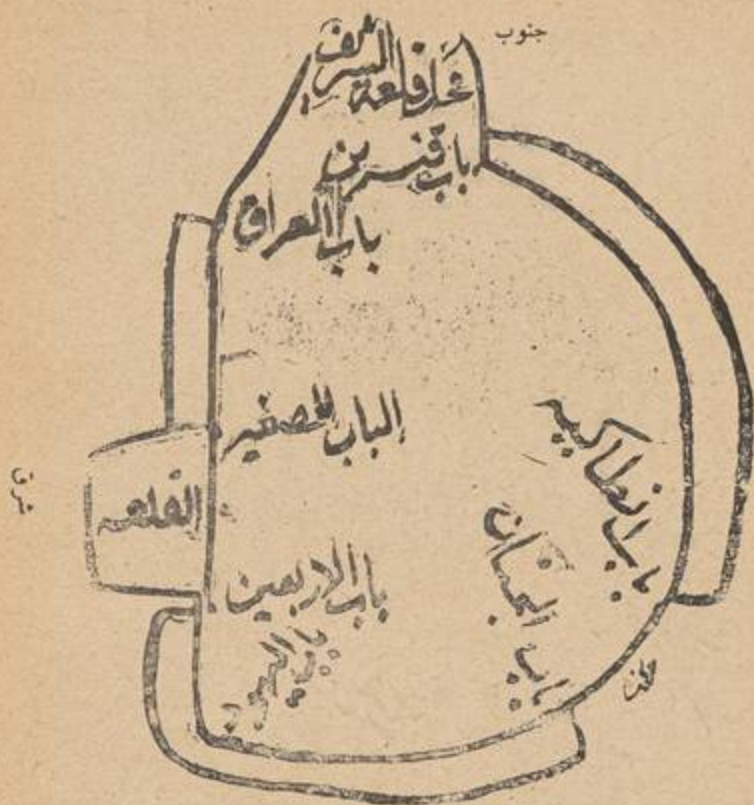 جنوب
محل قلعة الشريف
باب قنسرين
باب العراق
الباب الصغير
باب انطاكيه
شرق
القلعه
باب الجنان
باب الاربعين
باب اليهود